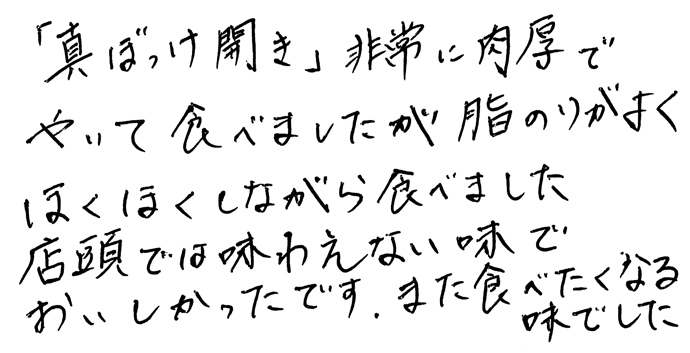 「真ぼっけ開き」非常に肉厚で
やいて食べましたが脂のりがよく
ほくほくしながら食べました
店頭では味わえない味で
おいしかったです.また食べたくなる
味でした